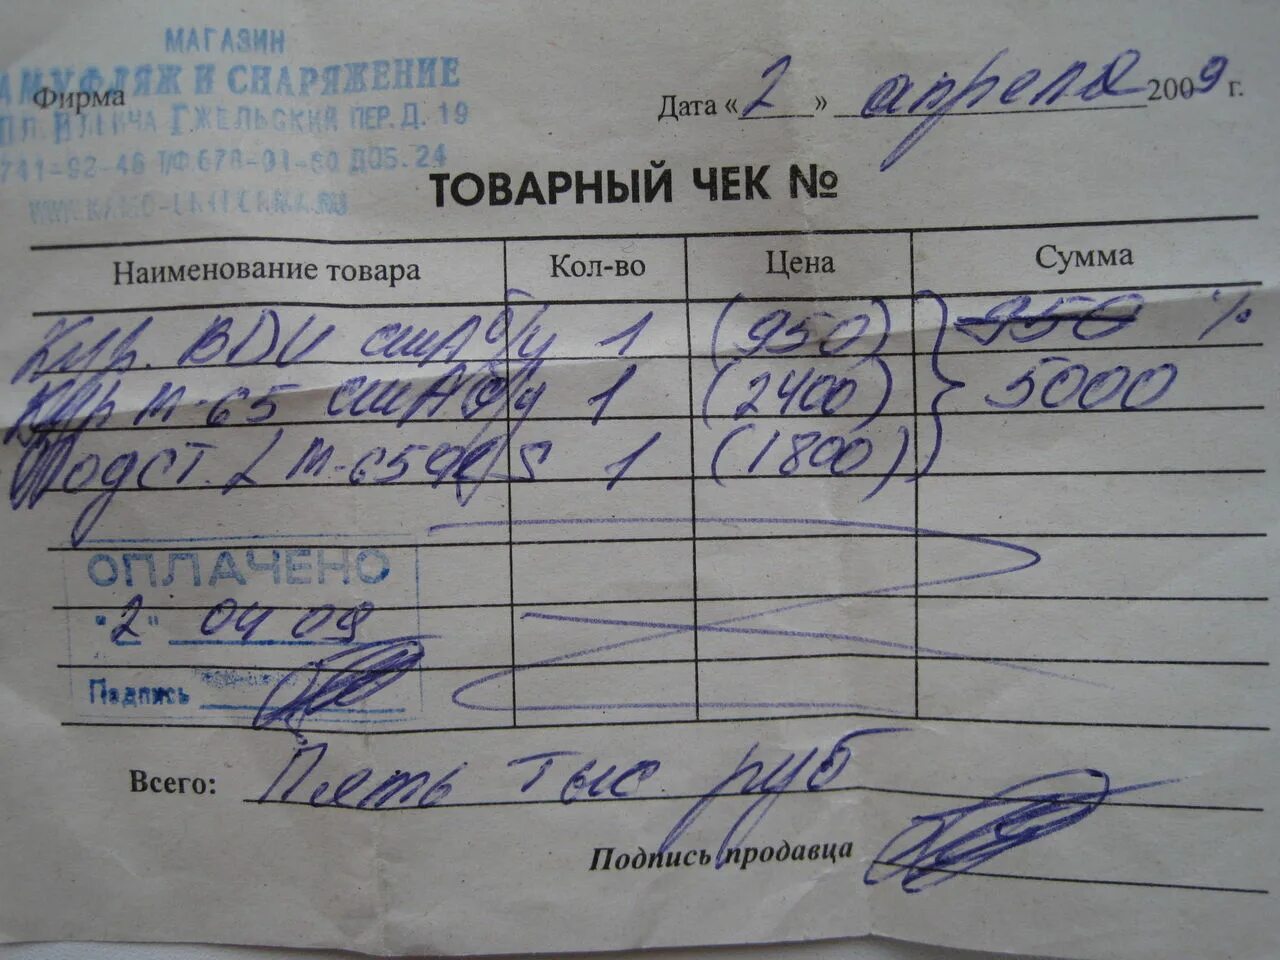 МАГАЗИН
АМУФЛЯЖ И СНАРЯЖЕНИЕ
ПЛ. ИЛЬИЧА ГЖЕЛЬСКИЙ ПЕР. Д. 19
741-92-46 Т/Ф 678-01-60 ДОБ. 24
Фирма
Дата «2» апреля 2009 г.
ТОВАРНЫЙ ЧЕК №
Наименование товара Кол-во Цена Сумма
BDU сшА б/у 1 (950) 950 %
М-65 сшА б/у 1 (2400) 5000
Подст. М-65 1 (1800)
ОПЛАЧЕНО
"2" 04 09
Подпись
Всего: Пять тыс руб
Подпись продавца